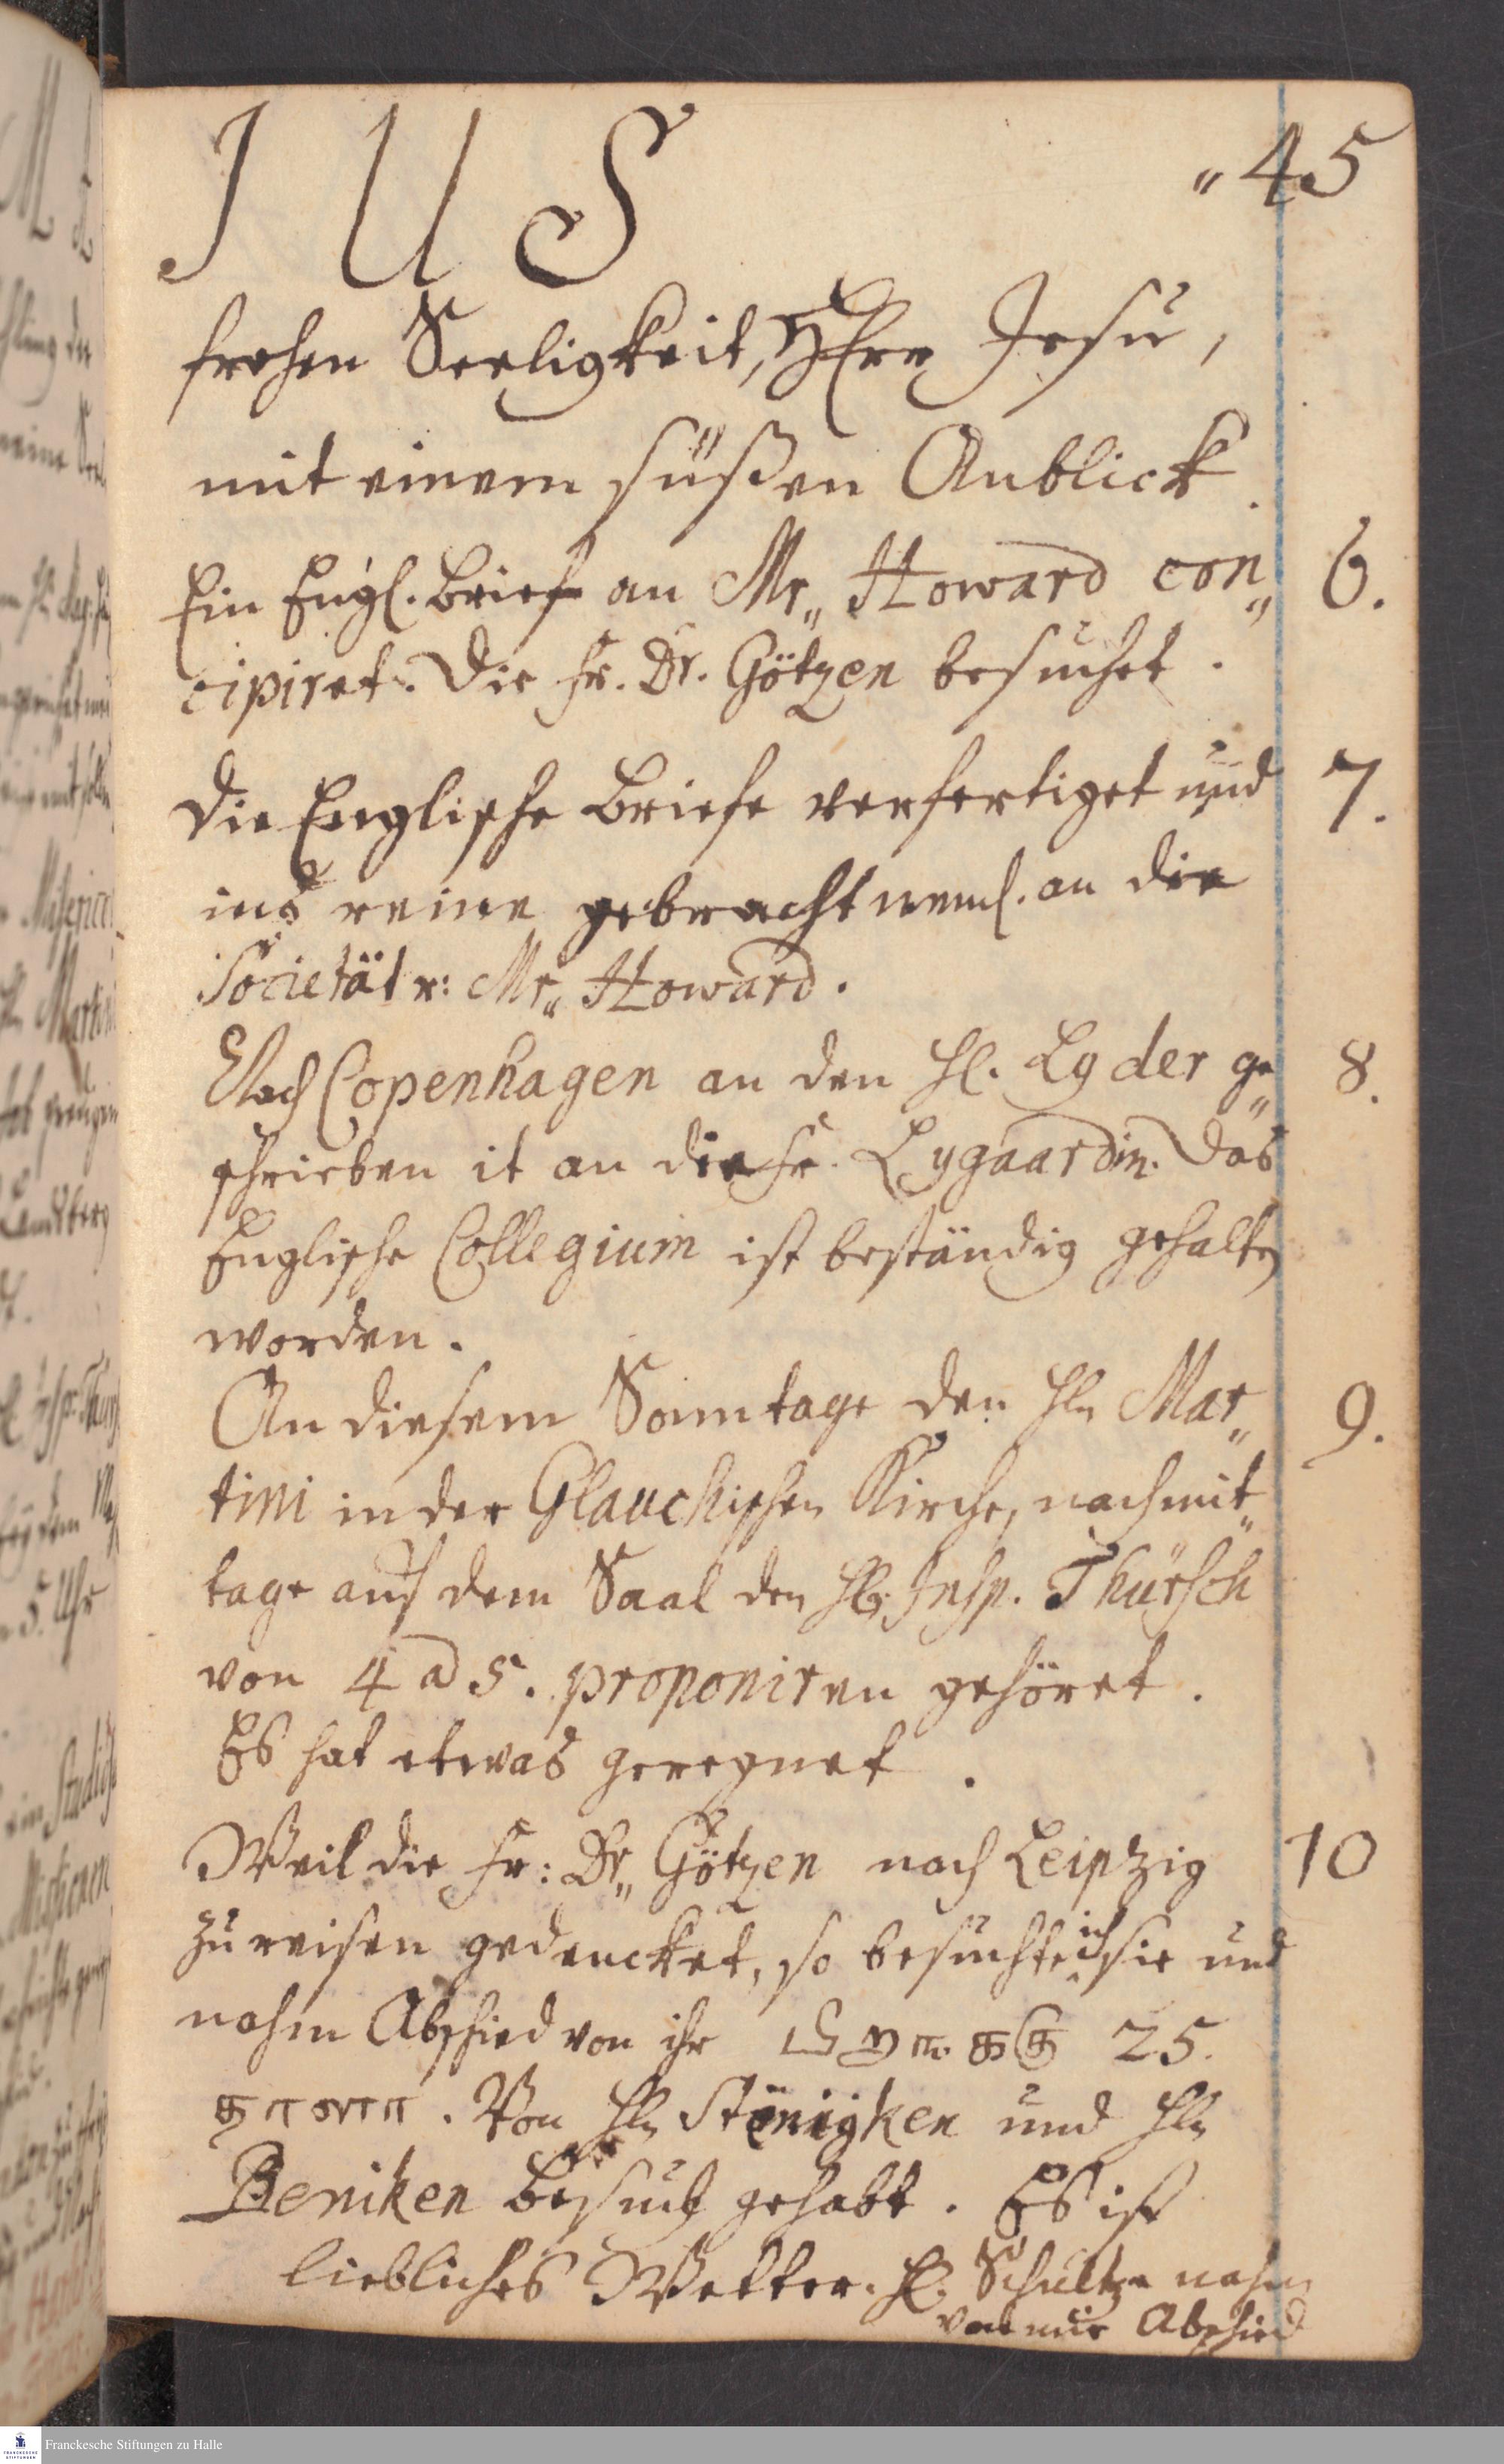 I U S
„45
frohen Seeligkeit, HErr Jesu,
mit einem süßen Anblick.
Ein Engl. Brief an Mr„ Howard con„ 6.
cipiret. Die Fr. Dr. Götzen besuchet.
Die Englische Briefe verfertiget und 7.
ins reine gebracht neml. an die
Societät u: Mr„ Howard.
Nach Copenhagen an den Hl. Lyder ge„ 8.
schrieben it an die Fr. Lygaardin. Das
Englische Collegium ist beständig gehalten
worden.
An diesem Sonntage den Hln Mar„ 9.
tini in der Glauchischen Kirche, nachmit„
tage auf dem Saal den Hln Insp. Thürsch
von 4 a 5. proponiren gehöret.
Es hat etwas geregnet.
Weil die Fr: Dr„ Götzen nach Leipzig 10
zu reisen gedencket, so besuchte ich sie und
nahm Abschied von ihr 25.
Von Hln Stönigken und Hln
Beniken Besuch gehabt. Es ist
liebliches Wetter. Hl. Schultze nahm
von mir Abschied
Franckesche Stiftungen zu Halle